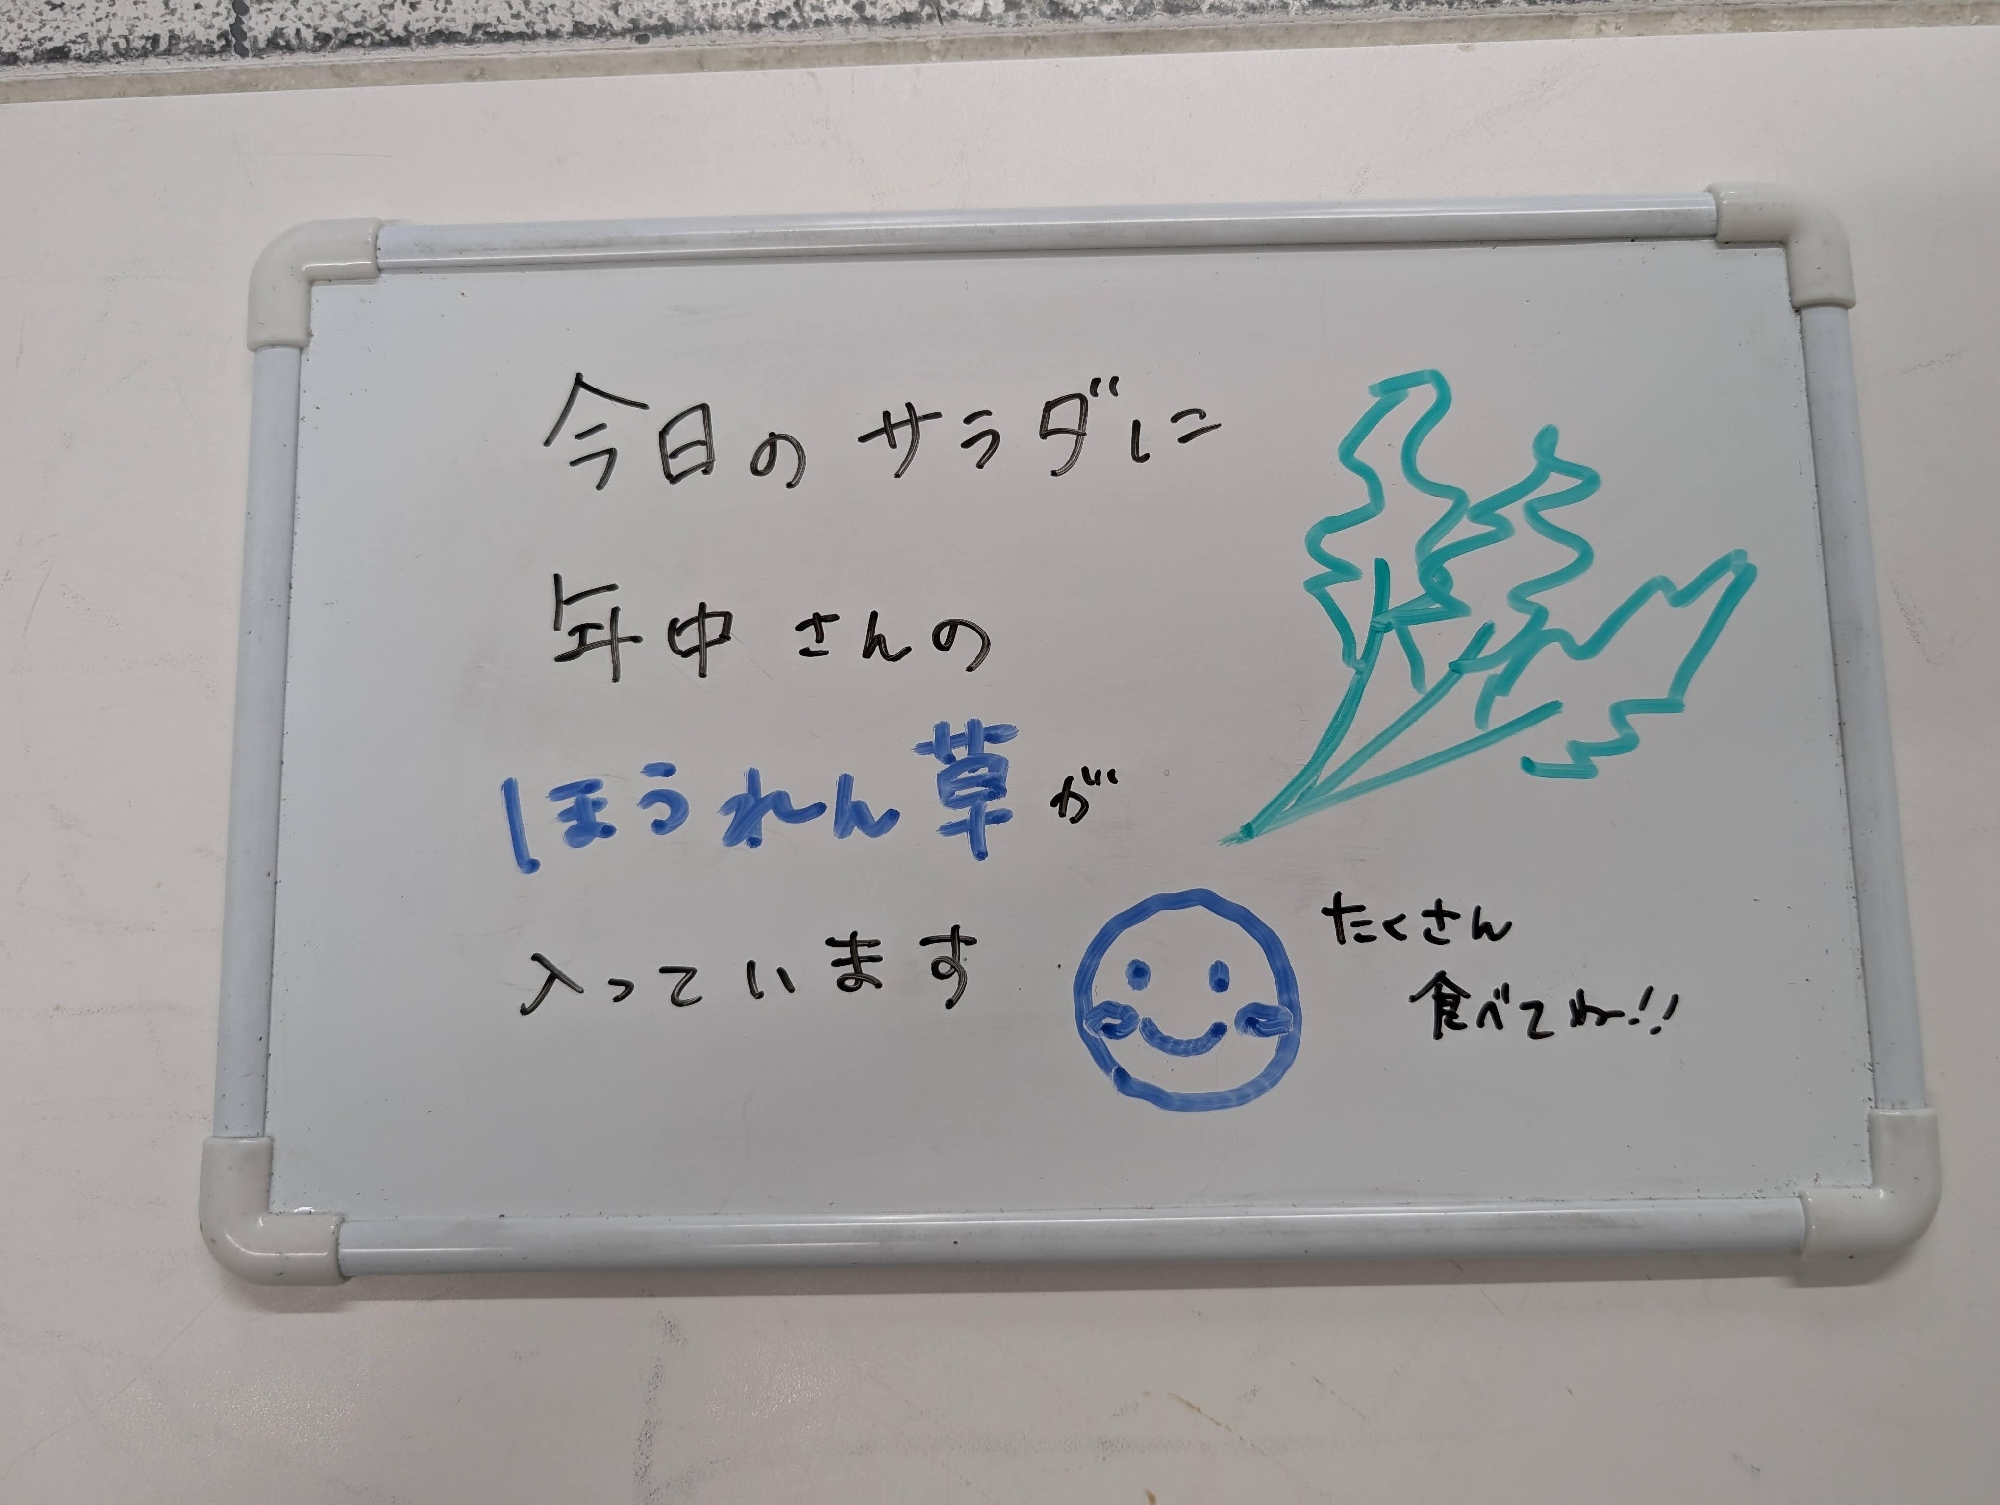 今日のサラダに
年中さんの
ほうれん草が
入っています
たくさん
食べてね!!